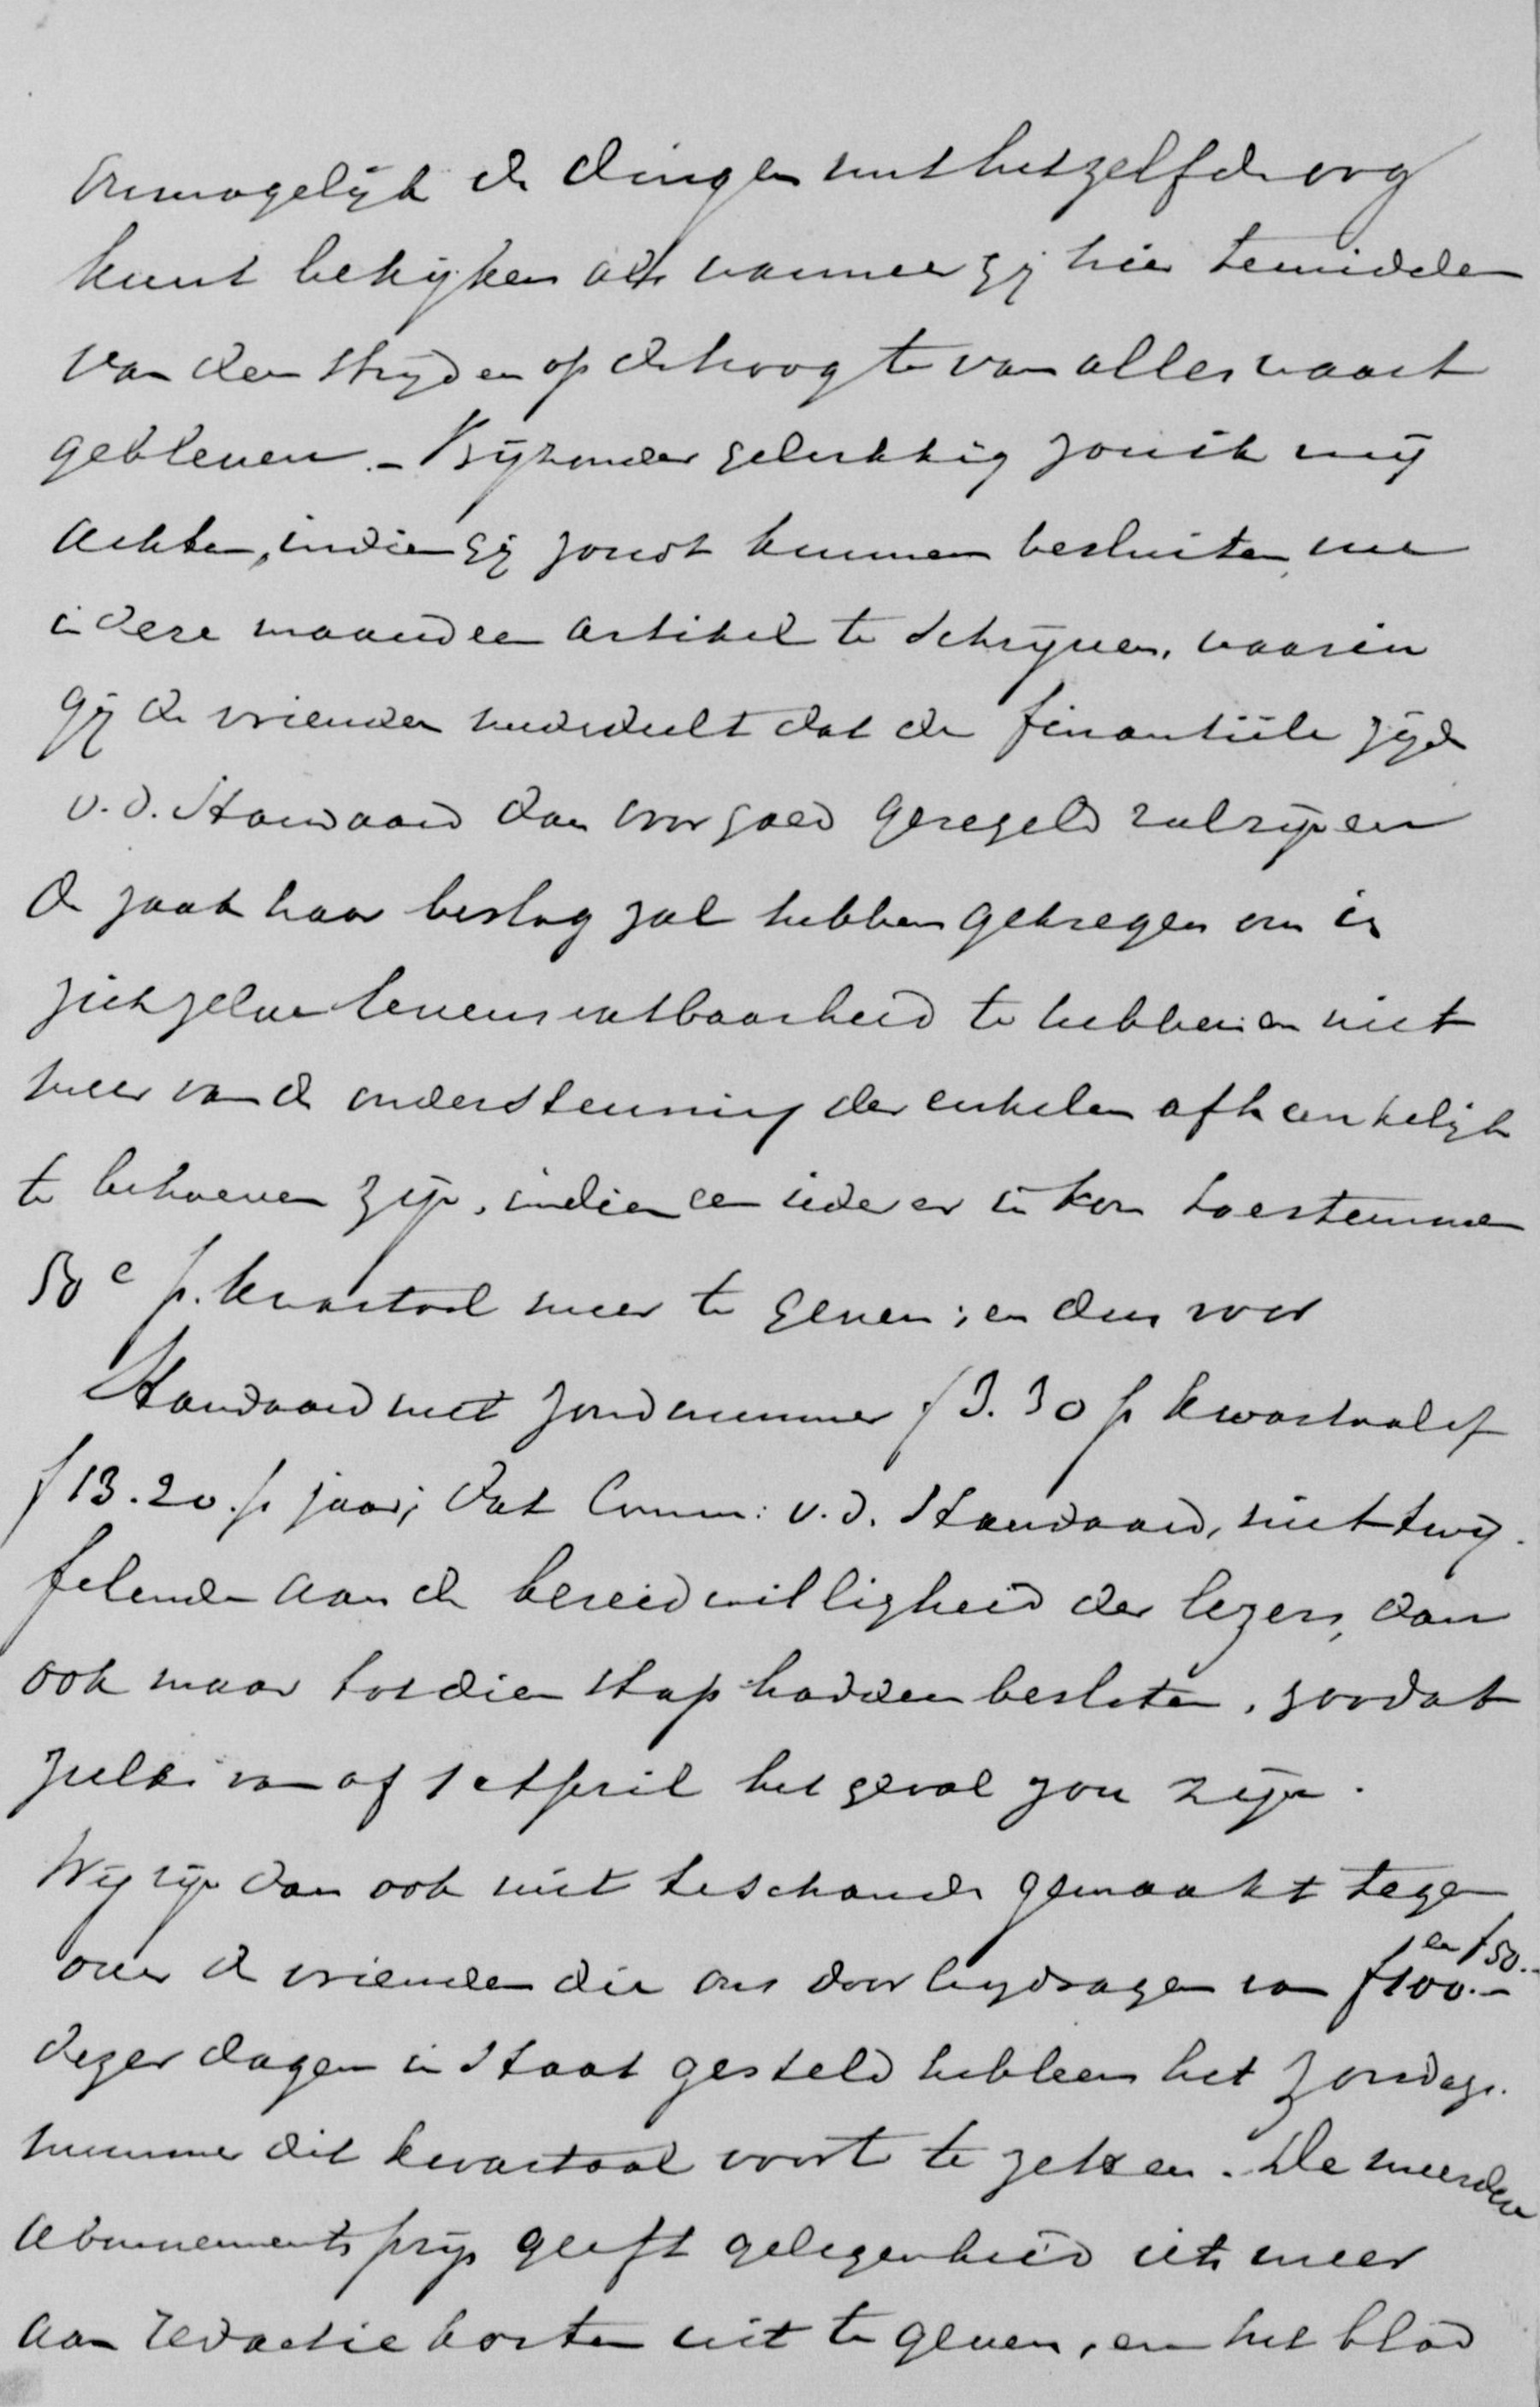 Onmogelijk de dingen met hetzelfde oog
kunt bekijken als wanneer gij hier temidden
van den strijd en op de hoogte van alles waart
gebleven. - Bijzonder gelukkig zou ik mij
achten, indien gij zoudt kunnen besluiten, me
in deze maand een artikel te schrijven, waarin
gij de vrienden mededeelt dat de finantiëele zijde
v.d. Standaard dan voor goed geregeld zal zijn en
de zaak haar beslag zal hebben gekregen om in
zichzelve levensvatbaarheid te hebben en niet
meer van de ondersteuning der enkelen afhankelijk
te behoeven zijn, indien een ieder er in kon toestemmen
50 c p. kwartaal meer te geven; en dus voor
Standaard met zondnummer f 3.30 p kwartaal of
f 13.20. p jaar; dat Comm: v.d. Standaard, niet twij-
felende aan de bereidwilligheid der lezers, dan
ook maar tot dien stap hadden besloten, zoodat
zulks van af 1 April het geval zou zijn.
Wij zijn dan ook niet beschaamd gemaakt tegen
over de vrienden die ons door bijdragen van f 100.- en f 50.-
dezer dagen in staat gesteld hebben het Zondags-
nummer dit kwartaal voort te zetten. De meerdere
abonnementsprijs geeft gelegenheid iets meer
aan redactie kosten uit te geven, en het blad